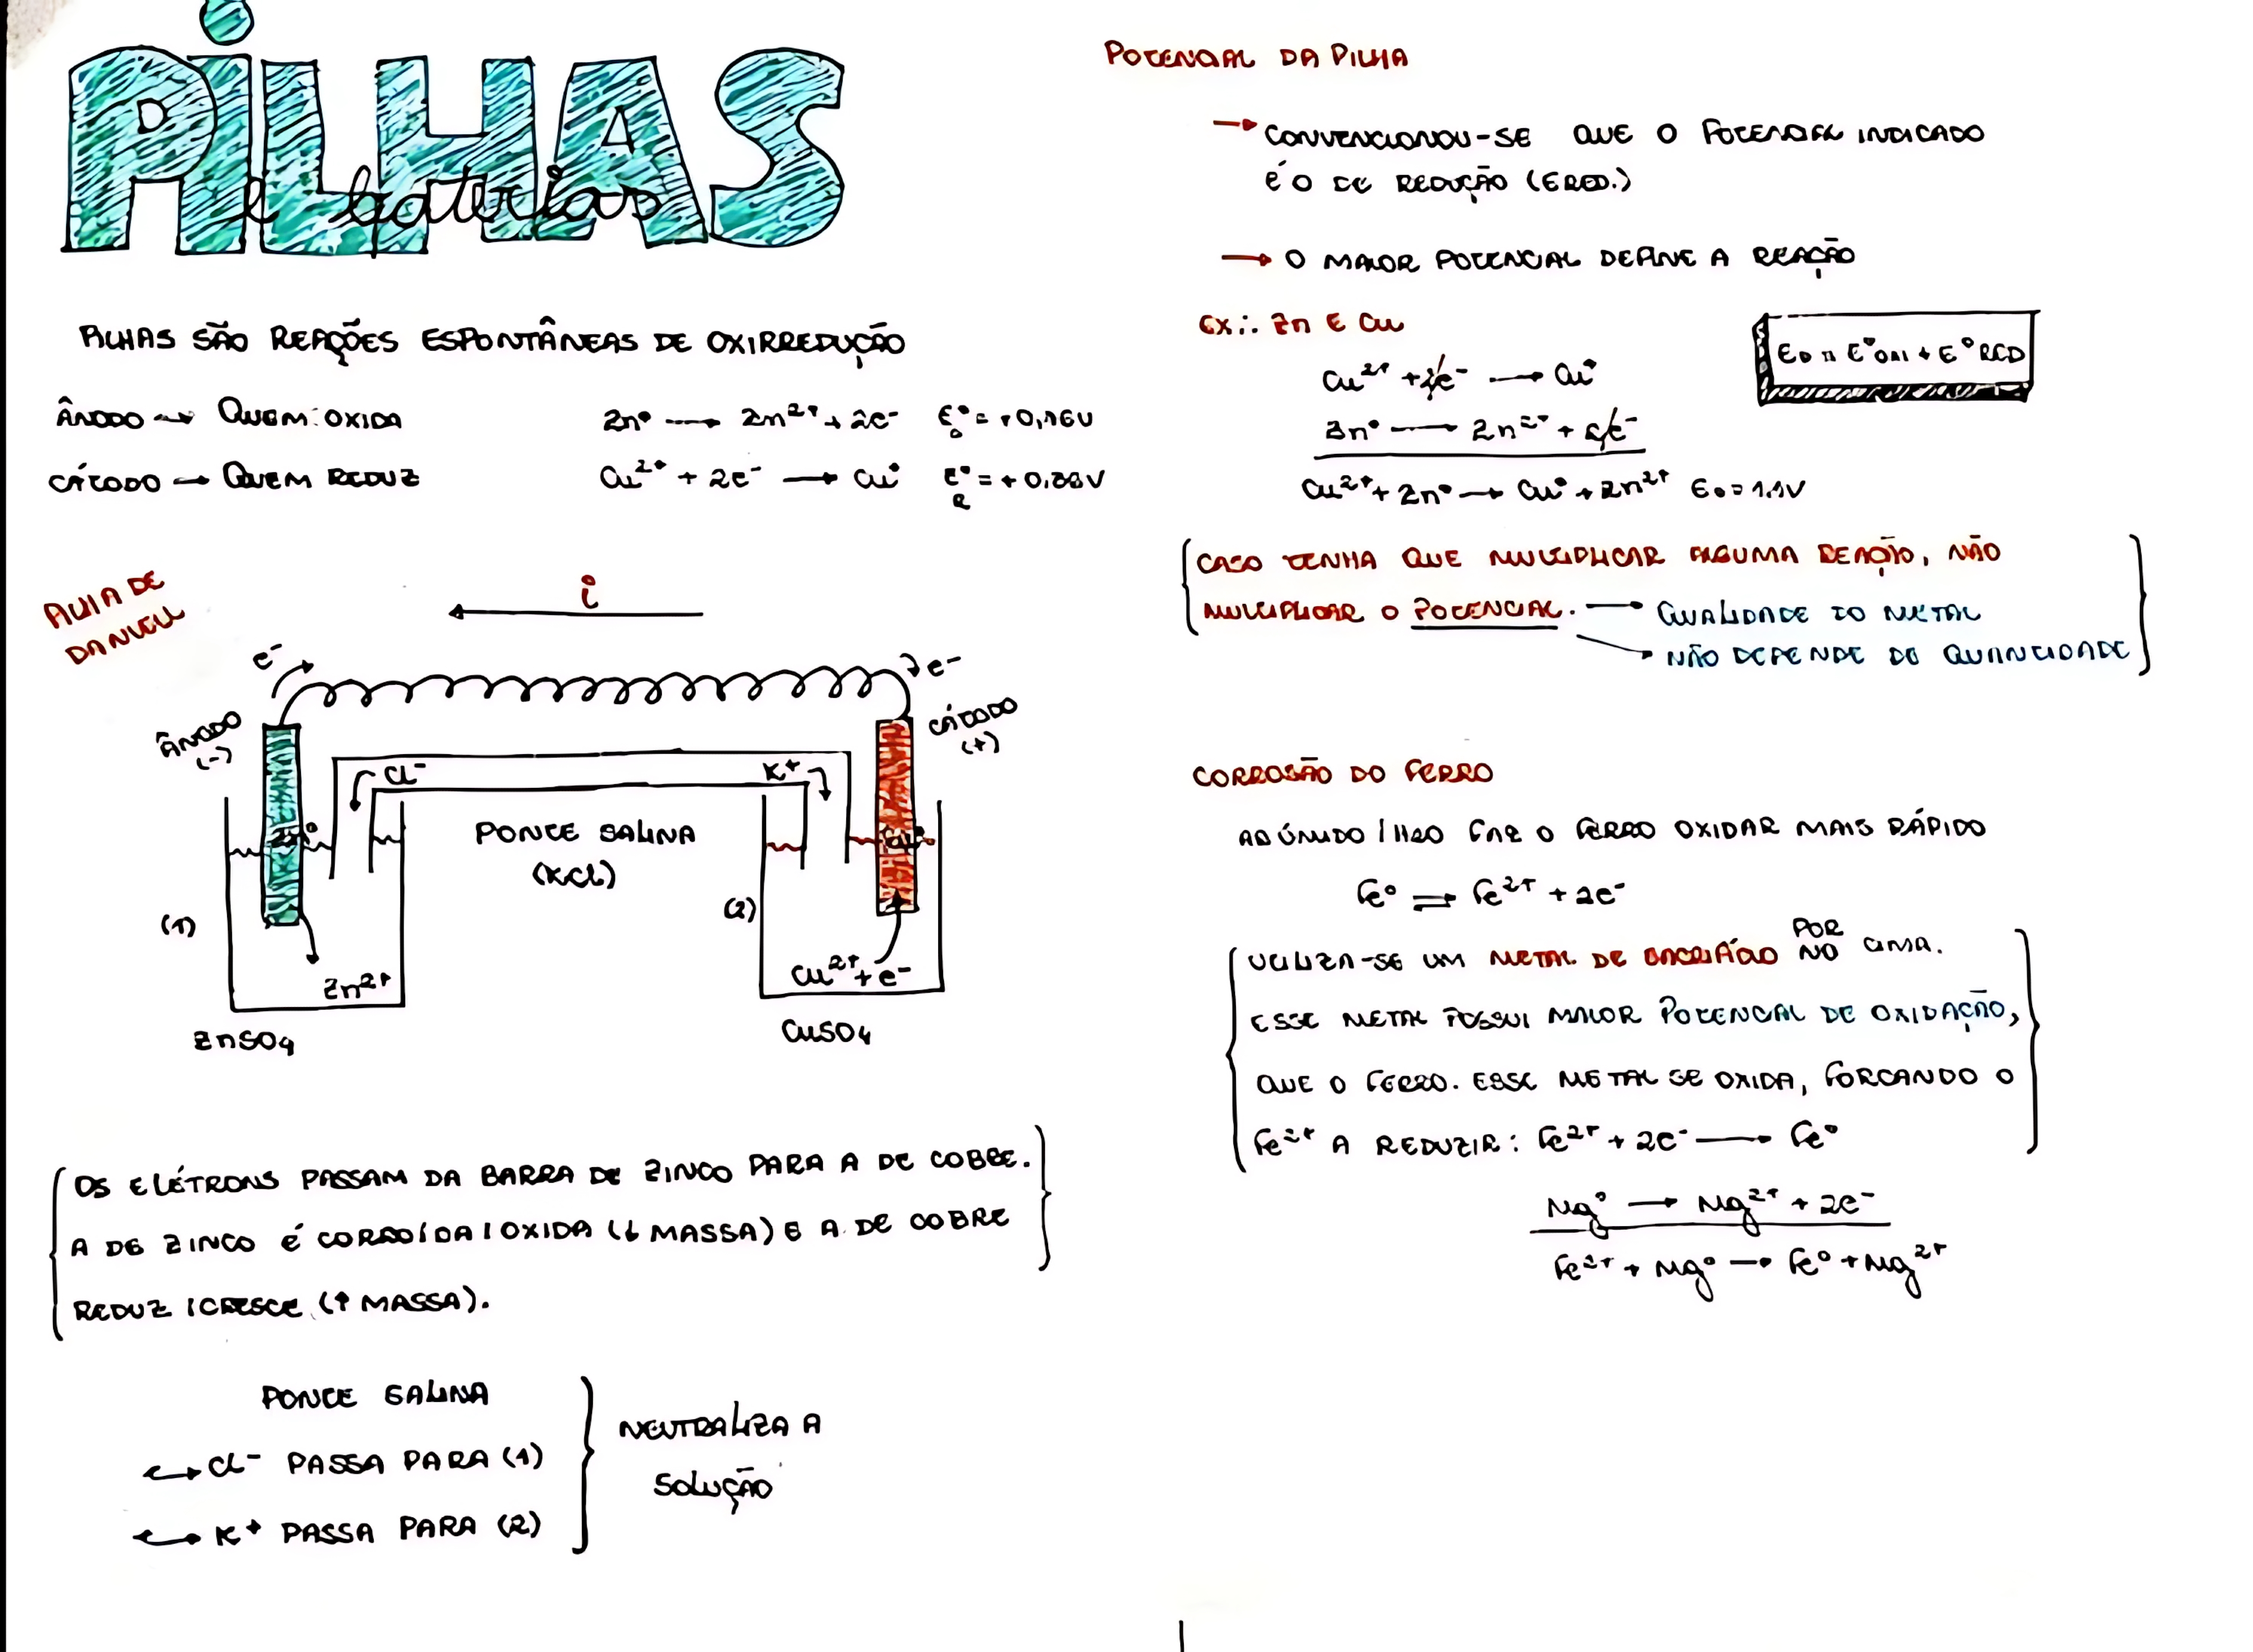 PiLHAS
e baterias
PILHAS SÃO REAÇÕES ESPONTÂNEAS DE OXIRREDUÇÃO
ÂNODO → QUEM OXIDA
Zn⁰ → Zn²⁺ + 2e⁻
CÁTODO → QUEM REDUZ
Cu²⁺ + 2e⁻ → Cu⁰
PILHA DE
DANIELL
i
e⁻
e⁻
ÂNODO
(-)
CÁTODO
(+)
Cl⁻
K⁺
Zn⁰
Cu⁰
PONTE SALINA
(KCl)
(1)
(2)
Zn²⁺
Cu²⁺ + e⁻
ZnSO₄
CuSO₄
OS ELÉTRONS PASSAM DA BARRA DE ZINCO PARA A DE COBRE.
A DE ZINCO É CORROÍDA / OXIDA (↓ MASSA) E A DE COBRE
REDUZ / CRESCE (↑ MASSA).
PONTE SALINA
↪ Cl⁻ PASSA PARA (1)
↪ K⁺ PASSA PARA (2)
NEUTRALIZA A
SOLUÇÃO
POTENCIAL DA PILHA
→ CONVENCIONOU-SE QUE O POTENCIAL INDICADO
É O DE REDUÇÃO (ERED.)
→ O MAIOR POTENCIAL DEFINE A REAÇÃO
EX.: Zn E Cu
E⁰ OXI + E⁰ RED
Cu²⁺ + 2e⁻ → Cu⁰
Zn⁰ → Zn²⁺ + 2e⁻
Cu²⁺ + Zn⁰ → Cu⁰ + Zn²⁺ E₀ = 1,1V
CASO TENHA QUE MULTIPLICAR ALGUMA REAÇÃO, NÃO
MULTIPLICAR O POTENCIAL. → QUALIDADE DO METAL
→ NÃO DEPENDE DE QUANTIDADE
CORROSÃO DO FERRO
AR ÚMIDO / H2O FAZ O FERRO OXIDAR MAIS RÁPIDO
Fe⁰ ⇌ Fe²⁺ + 2e⁻
UTILIZA-SE UM METAL DE SACRIFÍCIO POR NO CIMA.
ESSE METAL POSSUI MAIOR POTENCIAL DE OXIDAÇÃO,
QUE O FERRO. ESSE METAL SE OXIDA, FORCANDO O
Fe²⁺ A REDUZIR: Fe²⁺ + 2e⁻ → Fe⁰
Mg⁰ → Mg²⁺ + 2e⁻
Fe²⁺ + Mg⁰ → Fe⁰ + Mg²⁺